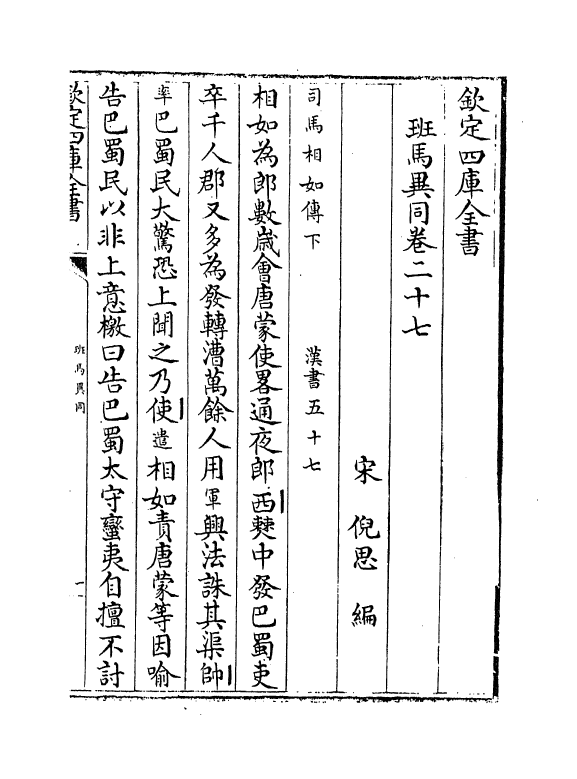 欽定四庫全書
班馬異同卷二十七
宋 倪思 編
司馬相如傳下 漢書五十七
相如為郎數歲會唐蒙使畧通夜郎西僰中發巴蜀吏
卒千人郡又多為發轉漕萬餘人用軍興法誅其渠帥
率巴蜀民大驚恐上聞之乃使遣相如責唐蒙等因喻
告巴蜀民以非上意檄曰告巴蜀太守蠻夷自擅不討
欽定四庫全書
班馬異同
一